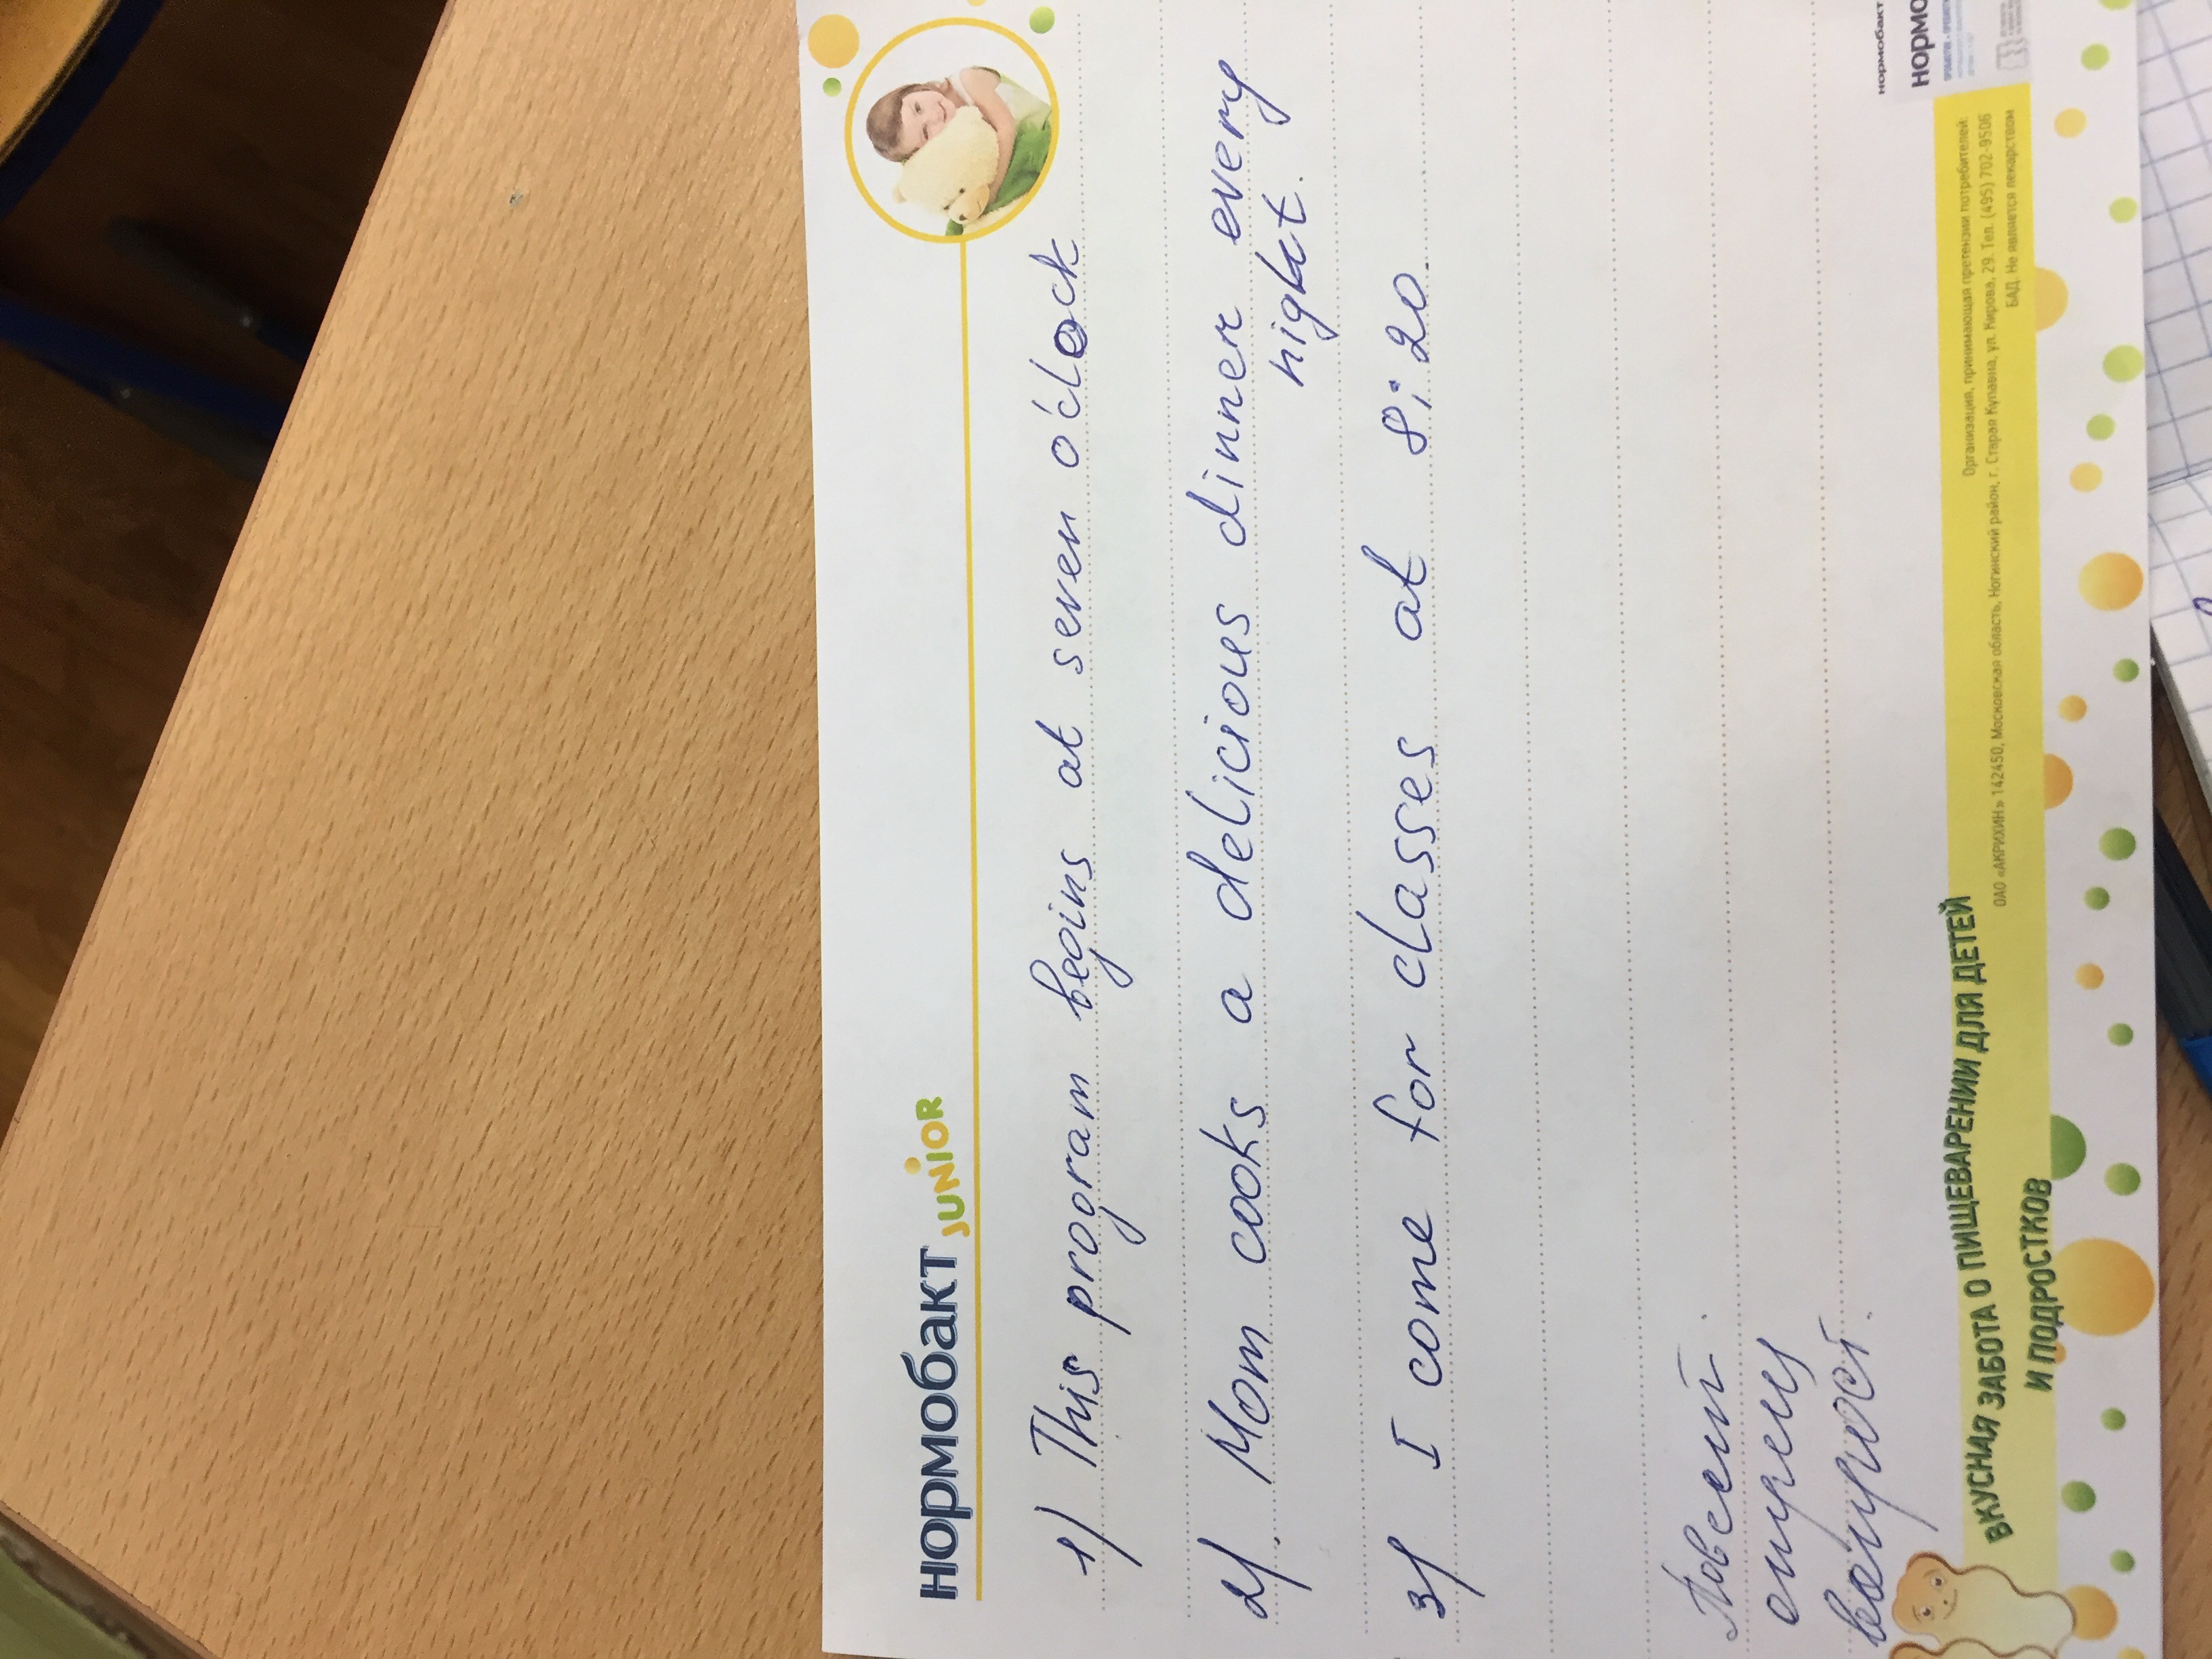 нормобакт JUNIOR
1) This program begins at seven o'clock
2). Mom cooks a delicious dinner every
night.
3) I come for classes at 8:20.
Повест.
отриц
вопрос.
ВКУСНАЯ ЗАБОТА О ПИЩЕВАРЕНИИ ДЛЯ ДЕТЕЙ
И ПОДРОСТКОВ
Организация, принимающая претензии потребителей:
ОАО «АКРИХИН» 142450, Московская область, Ногинский район, г. Старая Купавна, ул. Кирова, 29. Тел. (495) 702-9506
БАД. Не является лекарством
нормобакт
НОРМО